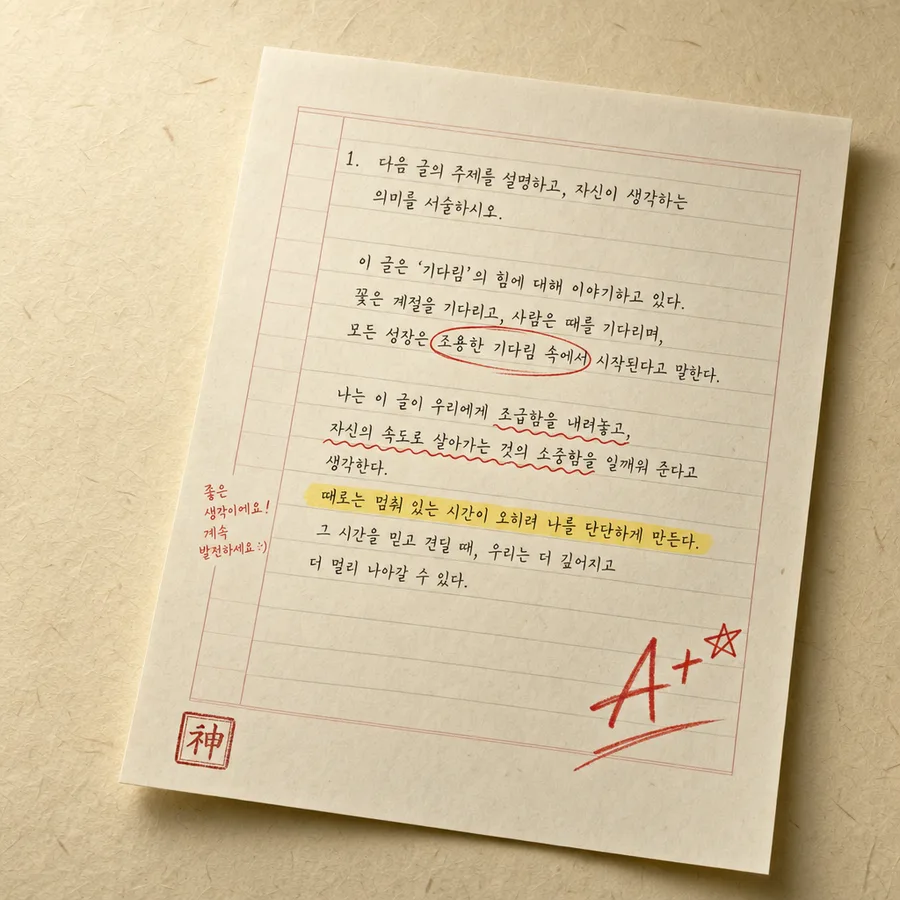 1. 다음 글의 주제를 설명하고, 자신이 생각하는
의미를 서술하시오.
이 글은 ‘기다림’의 힘에 대해 이야기하고 있다.
꽃은 계절을 기다리고, 사람은 때를 기다리며,
모든 성장은 조용한 기다림 속에서 시작된다고 말한다.
나는 이 글이 우리에게 조급함을 내려놓고,
자신의 속도로 살아가는 것의 소중함을 일깨워 준다고
생각한다.
때로는 멈춰 있는 시간이 오히려 나를 단단하게 만든다.
그 시간을 믿고 견딜 때, 우리는 더 깊어지고
더 멀리 나아갈 수 있다.
좋은
생각이에요!
계속
발전하세요 :)
A+
神